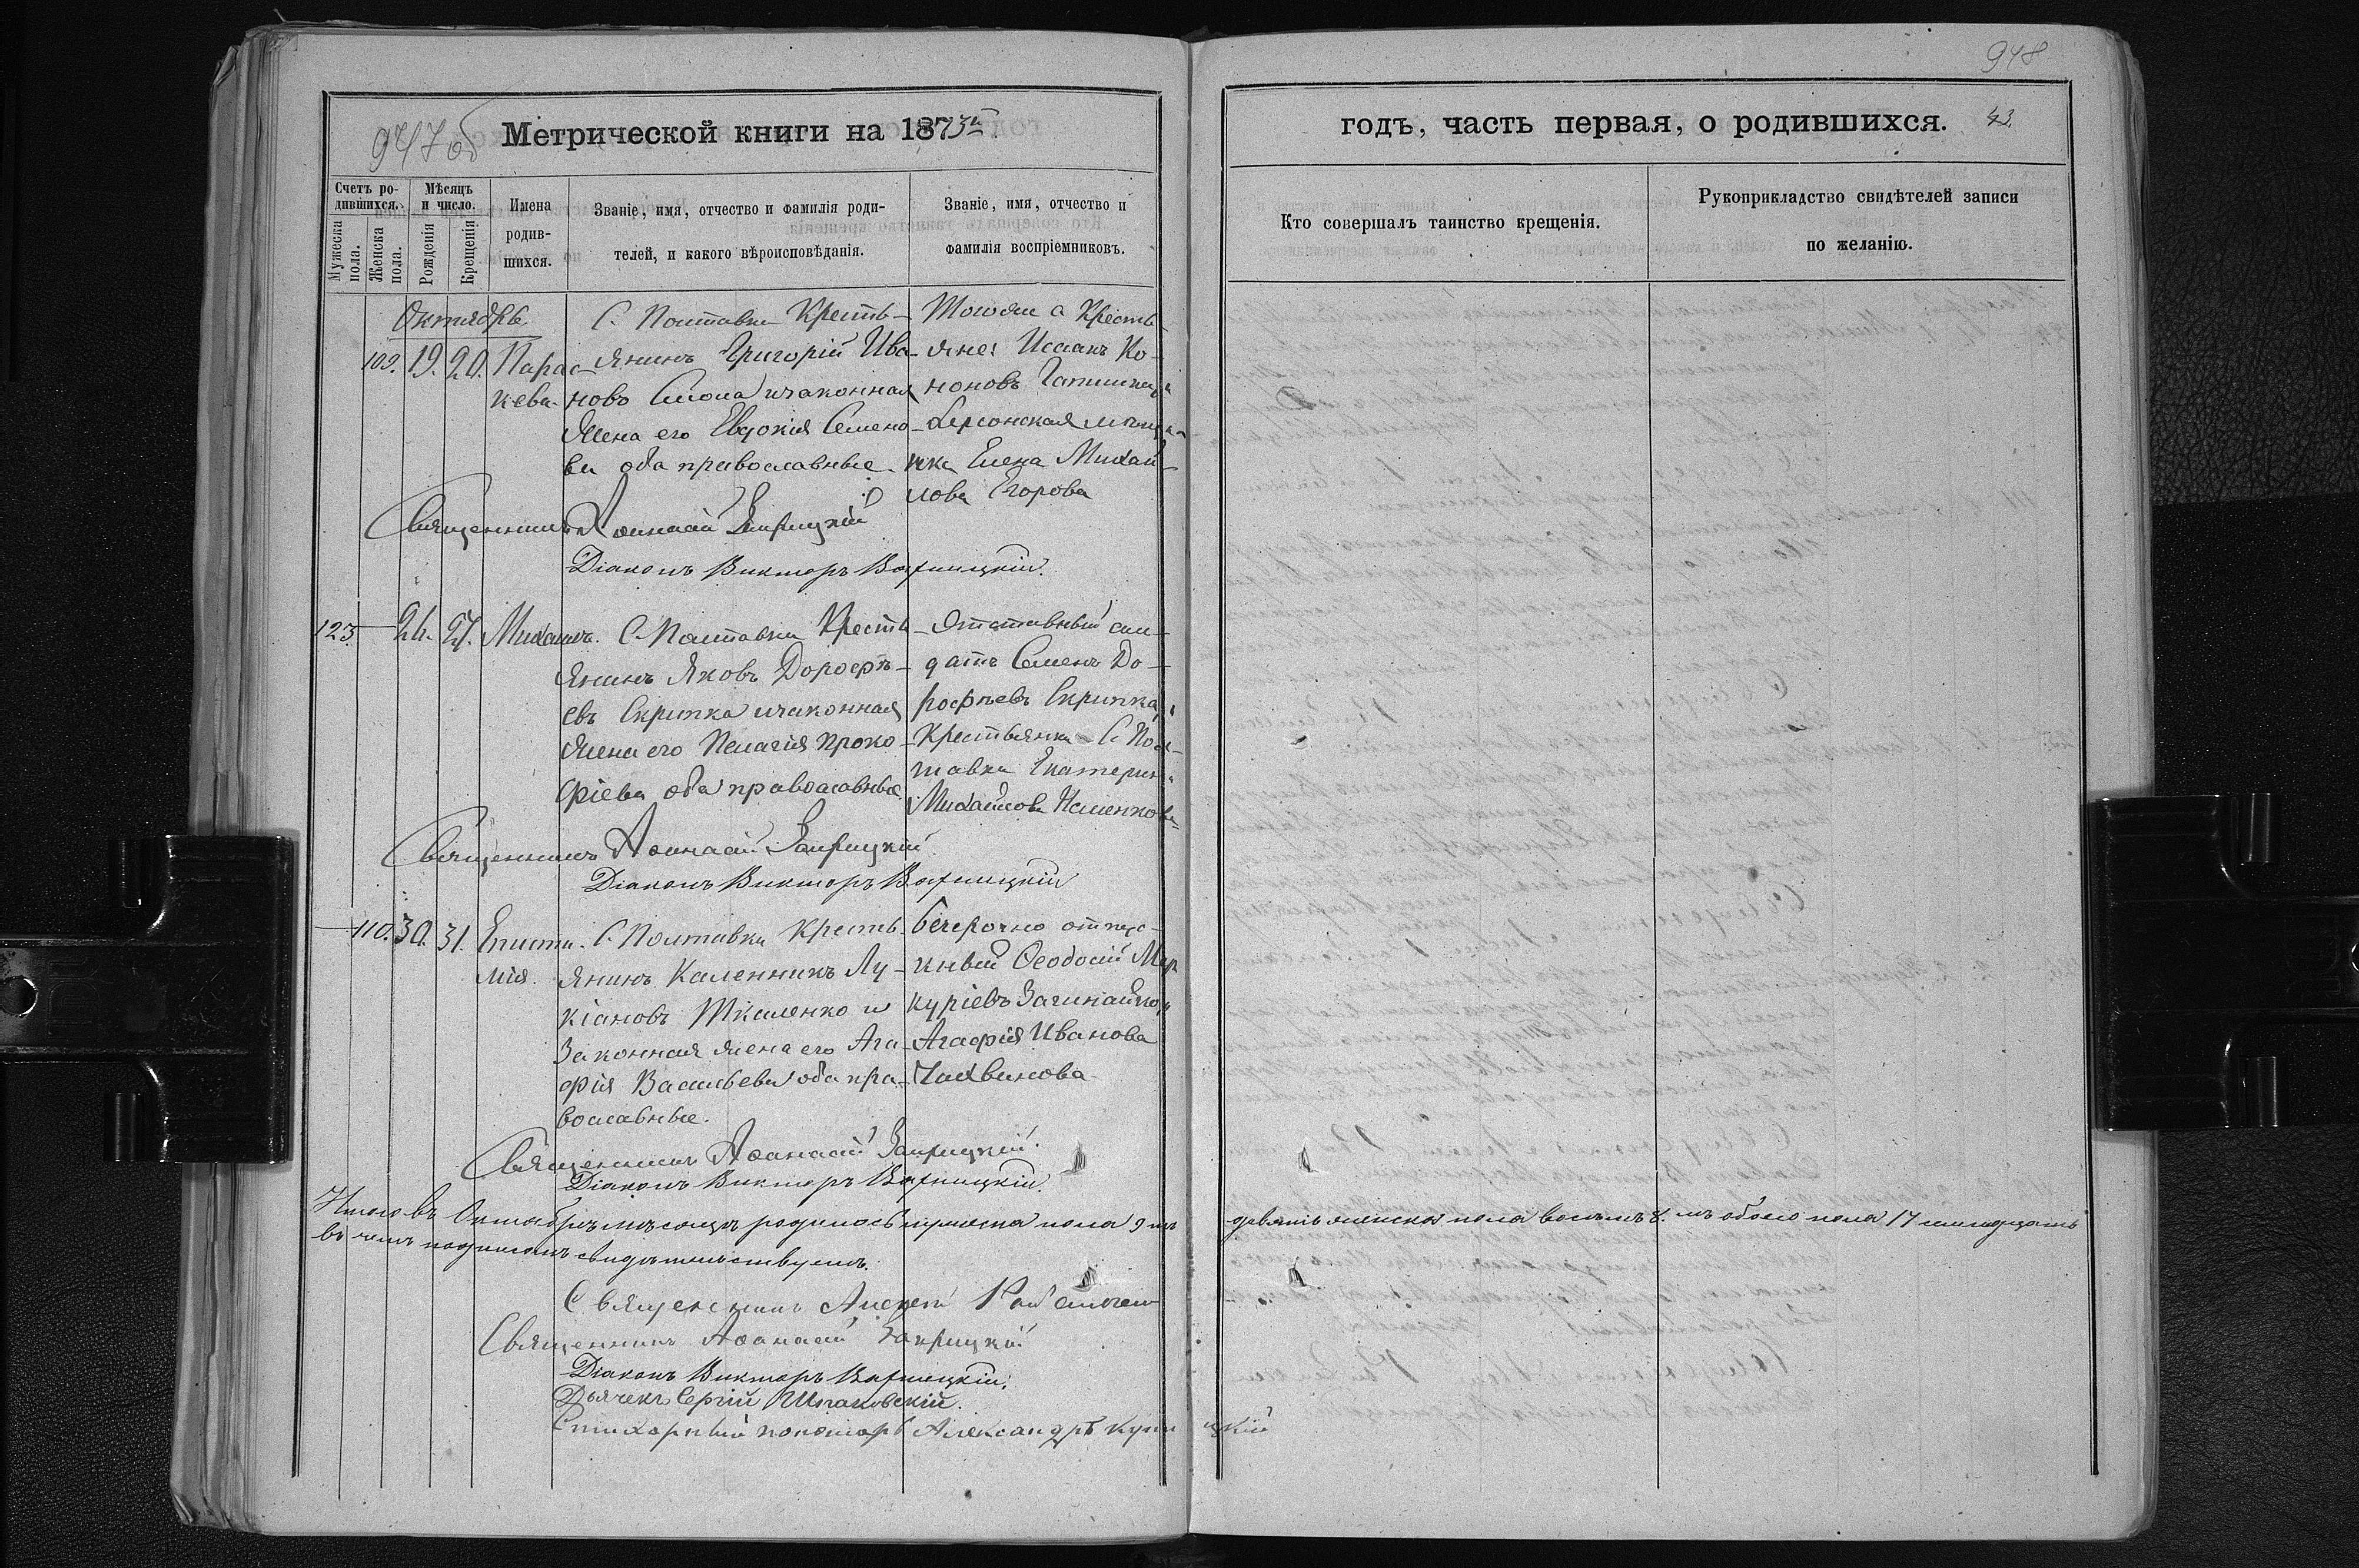 948
947 об
Метрической книги на 1873й
годъ, часть первая, о родившихся.
43.
Счетъ родившихся.
Мѣсяцъ и число.
Имена родившихся.
Званіе, имя, отчество и фамилія родителей, и какого вѣроисповѣданія.
Званіе, имя, отчество и фамилія воспріемниковъ.
Кто совершалъ таинство крещенія.
Рукоприкладство свидѣтелей записи по желанію.
Мужеска пола.
Женска пола.
Рожденія
Крещенія
Октябрь
109. 19. 20. Парас-
кева.
С. Полтавки Кресть-
янинъ Григорій Ива-
новъ изаконная
жена его Евдокія Семено-
ва оба православные.
Тогоже с Кресть-
яне: Исаакъ Ко-
ноновъ
Херсонская мѣщан-
ка Елена Михай-
лова Егорова
Священникъ Аѳанасій
Діаконъ Викторъ Варницкій.
123 26. 27. Михаилъ.
С. Полтавки Кресть-
янинъ Яковъ Дорофѣ-
евъ Скрипка изаконная
жена его Пелагія Проко-
фіева оба православные
Отставный сол-
датъ Семенъ До-
рофѣевъ Скрипка,
Крестьянка С. Пол-
тавки Екатерина
Михайлова
Священникъ Аѳанасій
Діаконъ Викторъ Варницкій
110. 30. 31. Еписти-
мія.
С. Полтавки Кресть-
янинъ Каленникъ Лу-
кіановъ Ткаленко и
Законная жена его Ага-
фія Васильева оба пра-
вославные.
безсрочно отпус-
кный Ѳеодосій Мер
куріевъ
Агафія Иванова
Священникъ Аѳанасій
Діаконъ Викторъ Варницкій.
Итого въ Октябрѣ мѣсяцѣ родилось мужеска пола 9 ть
девять женска пола восемь 8. мь обоего пола 17 семнадцать
въ чемъ подписомъ свидѣтельствуемъ.
Священникъ Алексѣй
Священникъ Аѳанасій
Діаконъ Викторъ Варницкій.
Дьячекъ Сергій Шпаковскій.
Стихарный пономарь Александръ